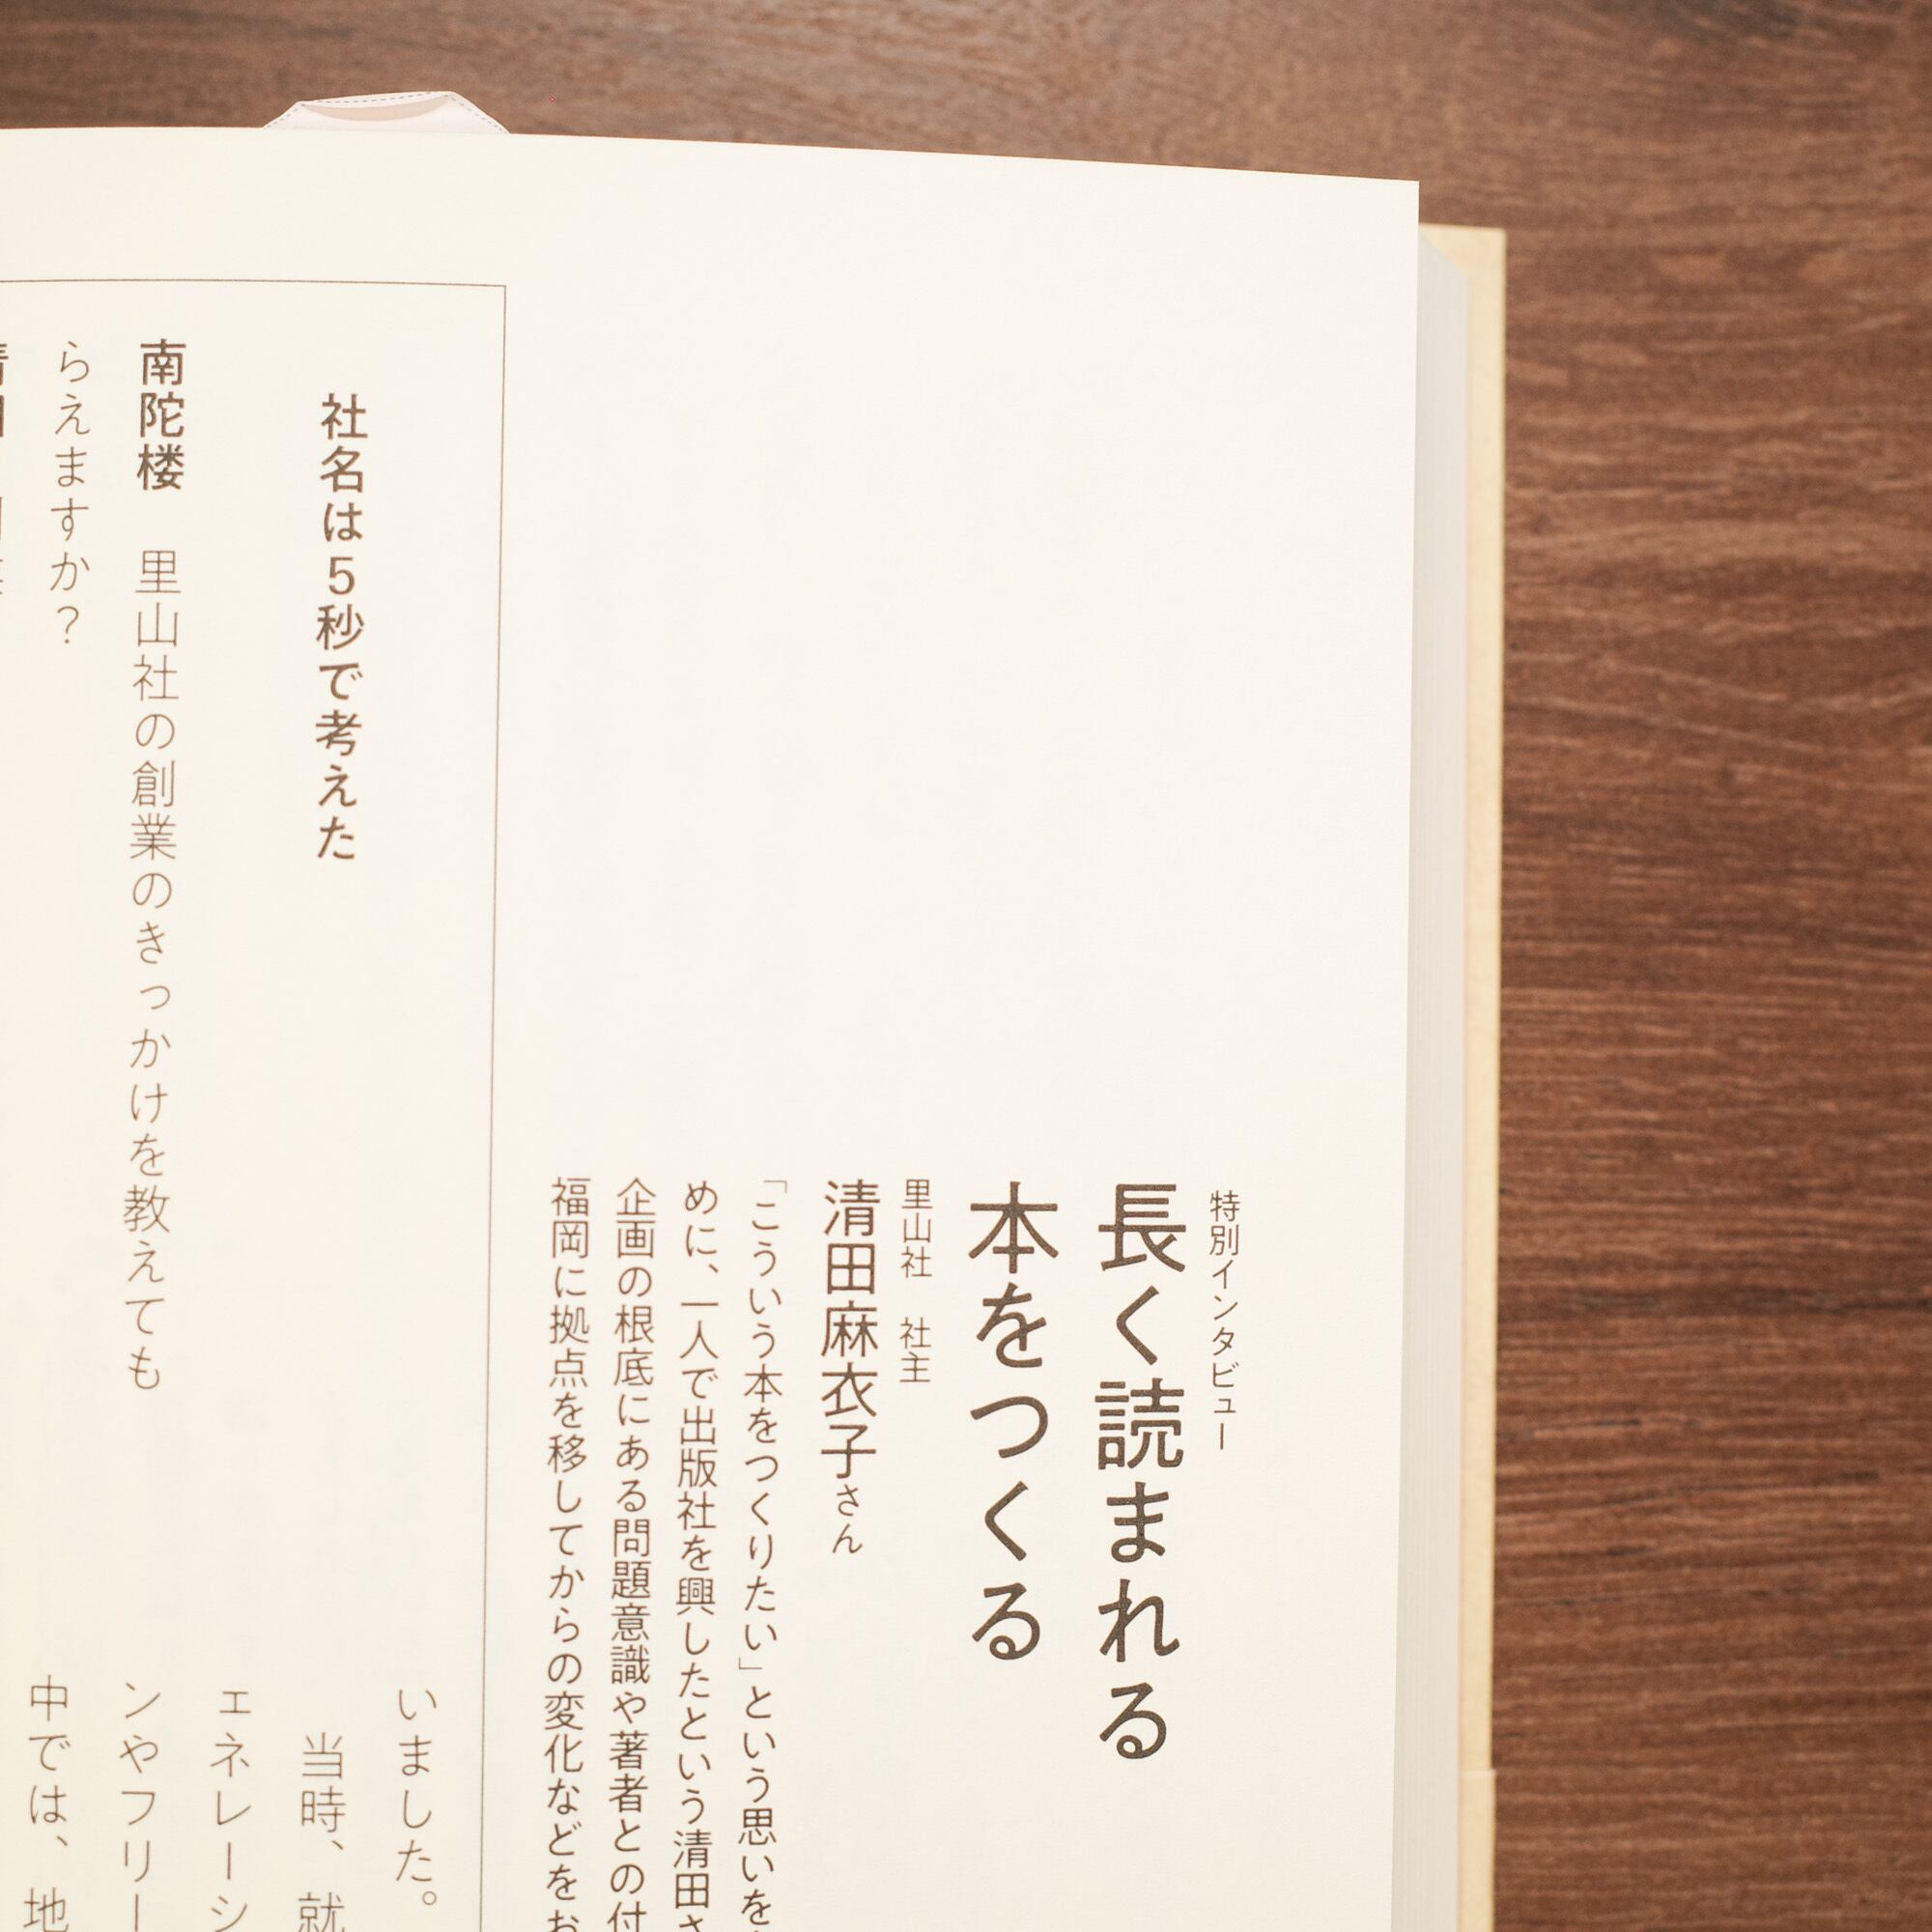 特別インタビュー
長く読まれる
本をつくる
里山社　社主
清田麻衣子さん
「こういう本をつくりたい」という思いを
めに、一人で出版社を興したという清田さ
企画の根底にある問題意識や著者との付
福岡に拠点を移してからの変化などをお
社名は5秒で考えた
南陀楼　里山社の創業のきっかけを教えても
らえますか？
いました。
当時、就
ェネレーシ
ンやフリー
中では、地